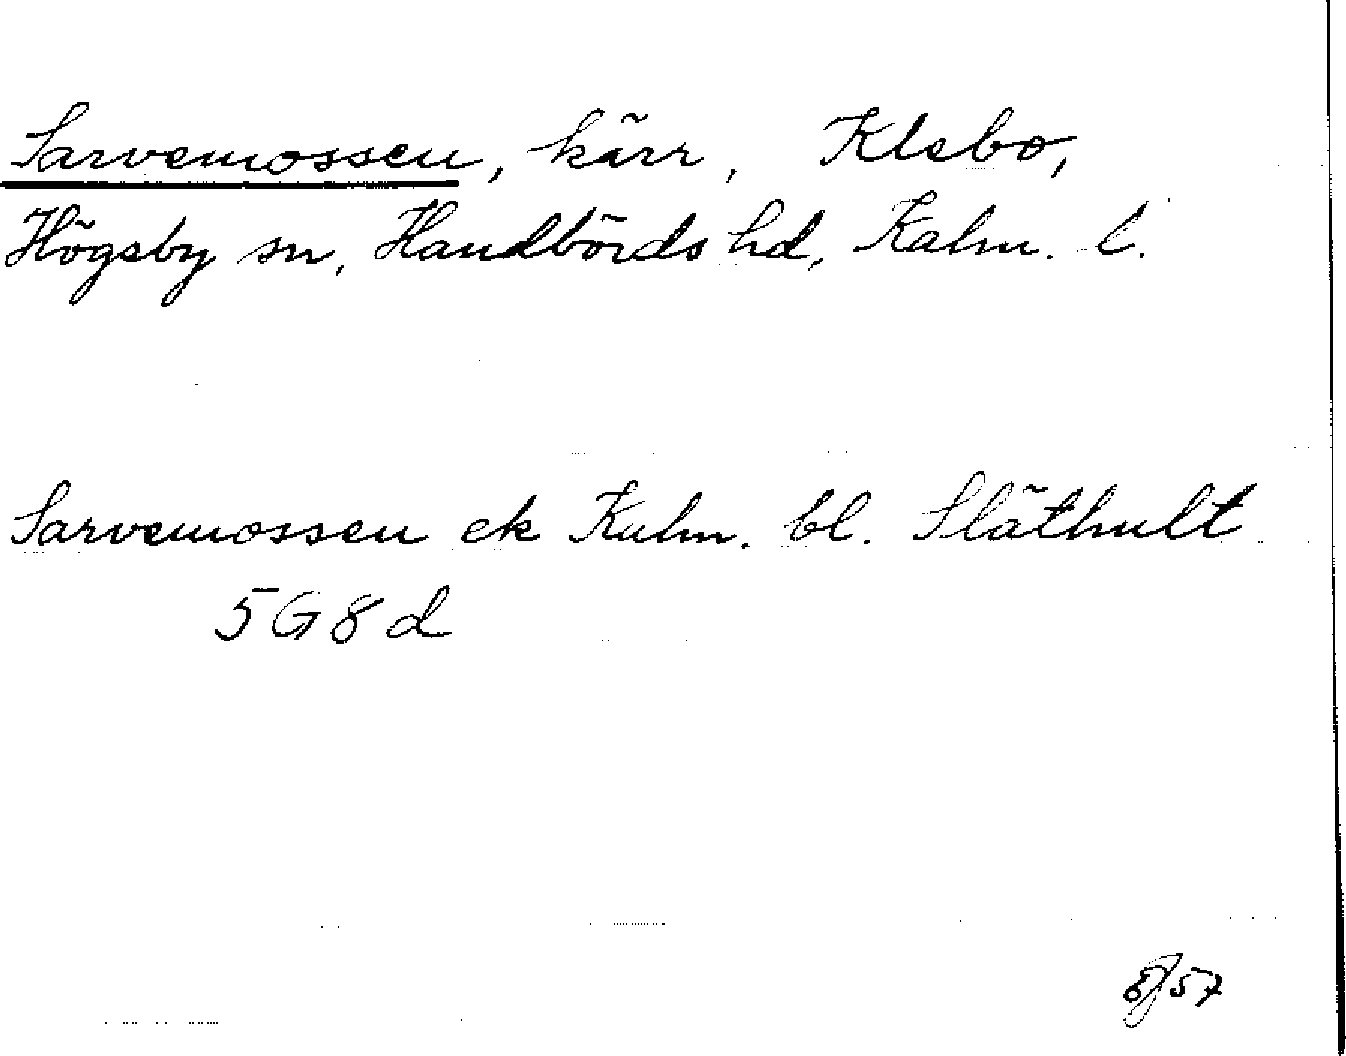 Sarvemossen, kärr, Klebo,
Högsby sn, Handbörds hd, Kalm. l.
Sarvemossen ek Kalm. bl. Släthult
5G8d
57